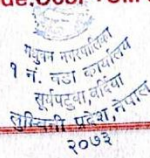 मधुवन नगरपालिका
१ नं. वडा कार्यालय
सूर्यपटुवा, बर्दिया
लुम्बिनी प्रदेश, नेपाल
२०७३